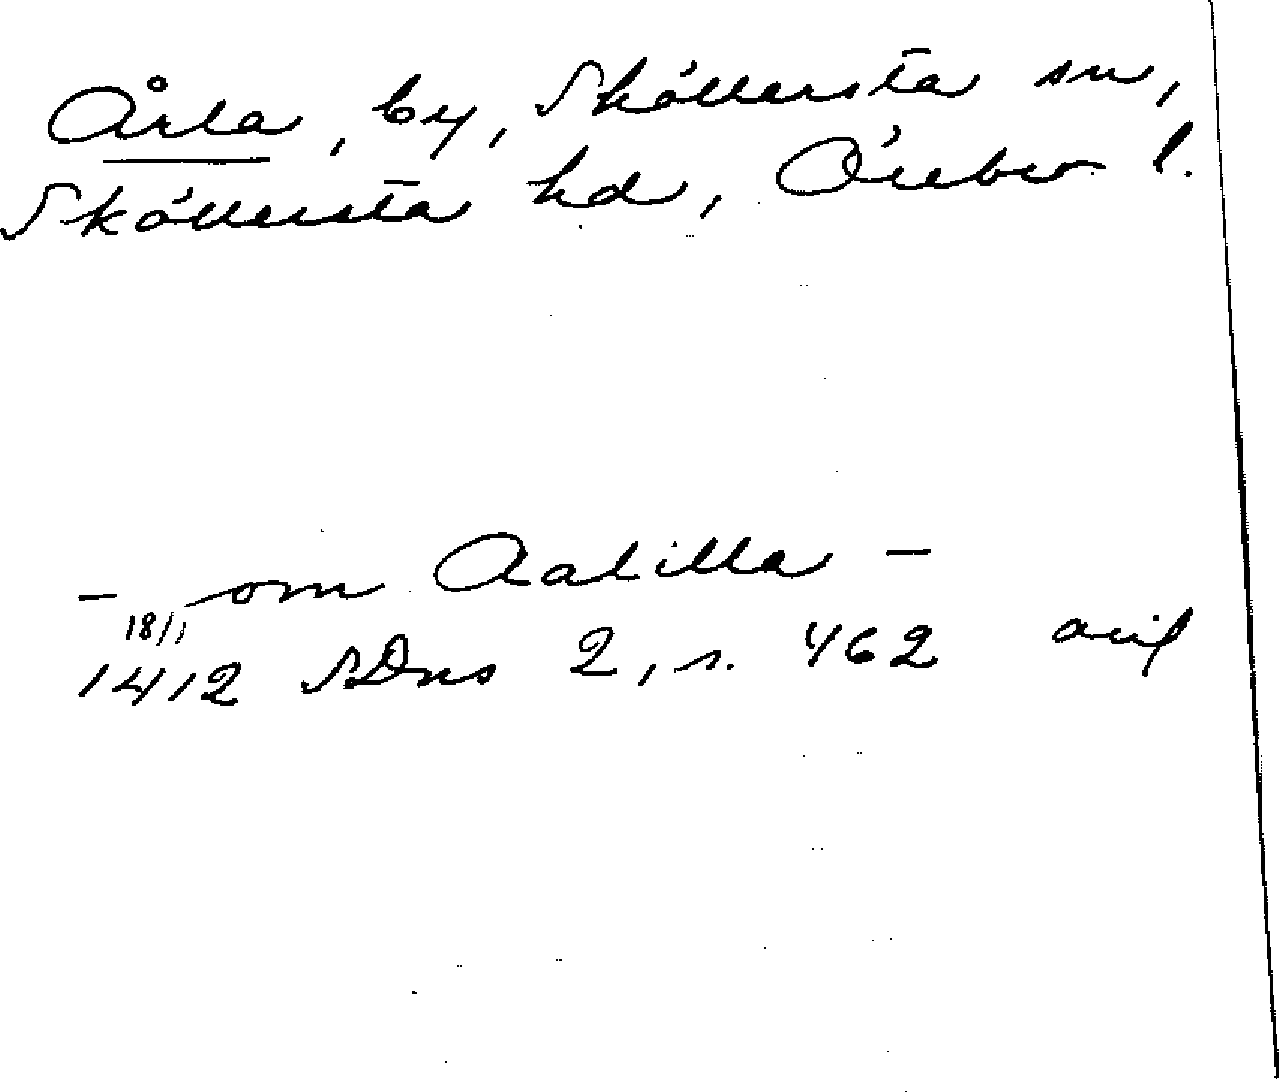 Årla, by, Sköllersta sn,
Sköllersta hd, Örebro l.
– om Aalilla –
18/1
1412 SDns 2, s. 462 avif